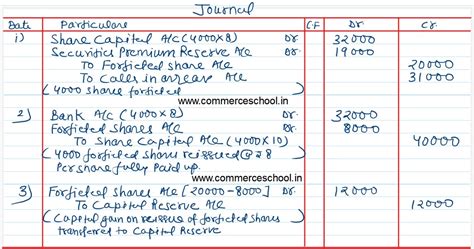 Journal
Date Particulars C.F Dr. Cr.
1) Share Capital A/c (4000×8) Dr. 32000
Securities Premium Reserve A/c 19000
To Forfieted share A/c 20000
To Calls in arrear A/c 31000
(4000 shares forfieted)
www.commerceschool.in
2) Bank A/c (4000×8) Dr. 32000
Forfieted Shares A/c 8000
To Share Capital A/c (4000×10) 40000
(4000 forfieted shares reissued @ ₹ 8
Per share fully Paid up.
www.commerceschool.in
3) Forfieted shares A/c [20000-8000] Dr. 12000
To Capital Reserve A/c 12000
(Capital gain on reissue of forfieted shares
transferred to Capital Reserve